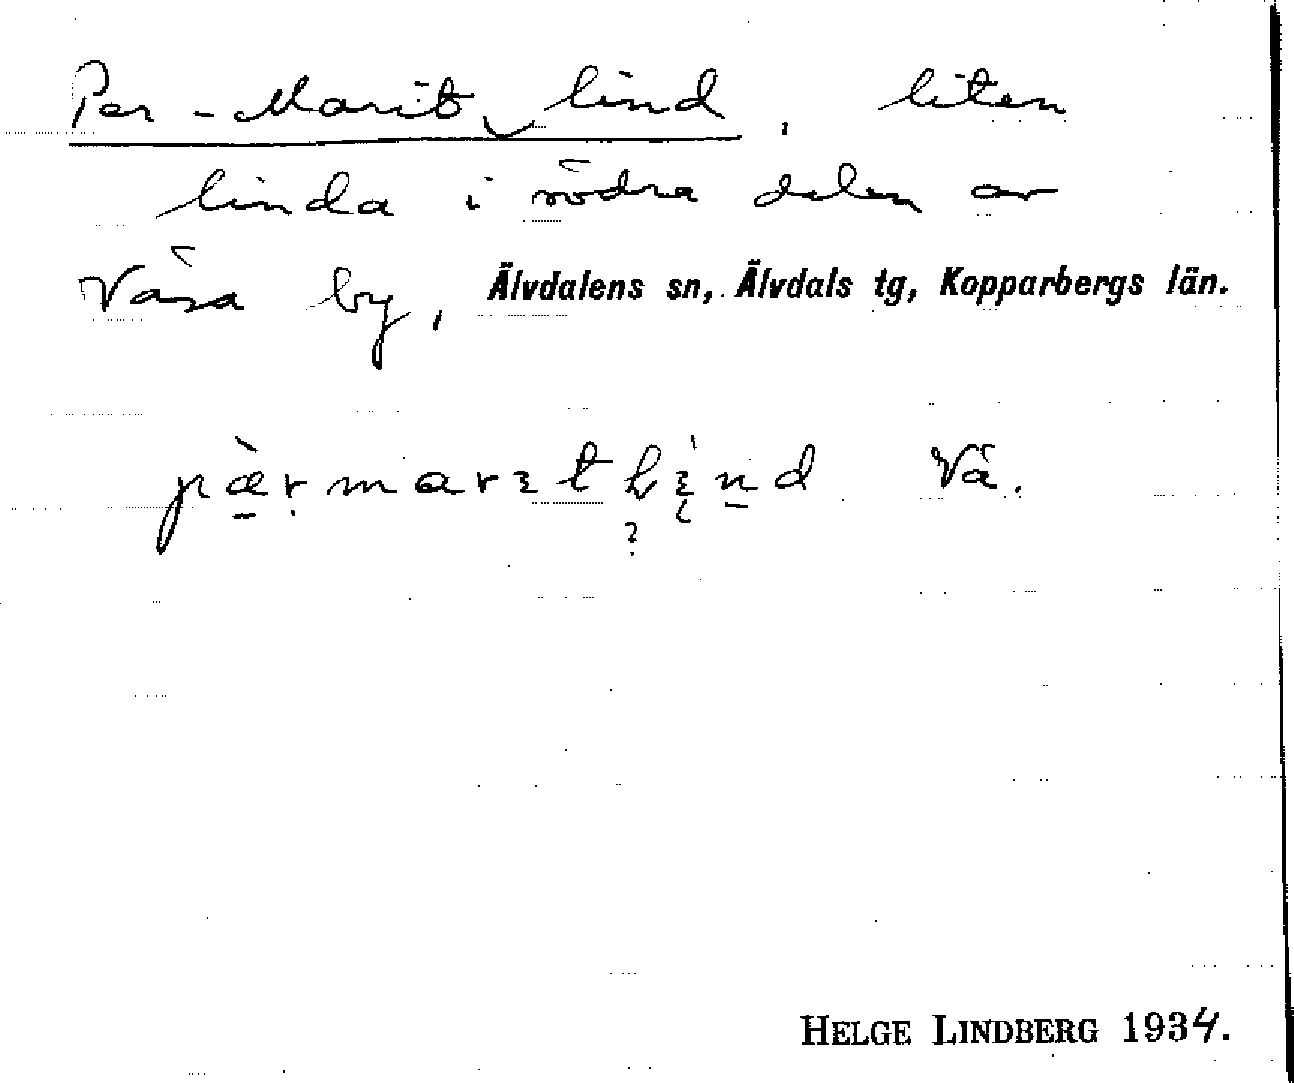 Per-Marit‿lind, liten
linda i södra delen av
Väsa by, Älvdalens sn, Älvdals tg, Kopparbergs län.
Vä.
HELGE LINDBERG 1934.